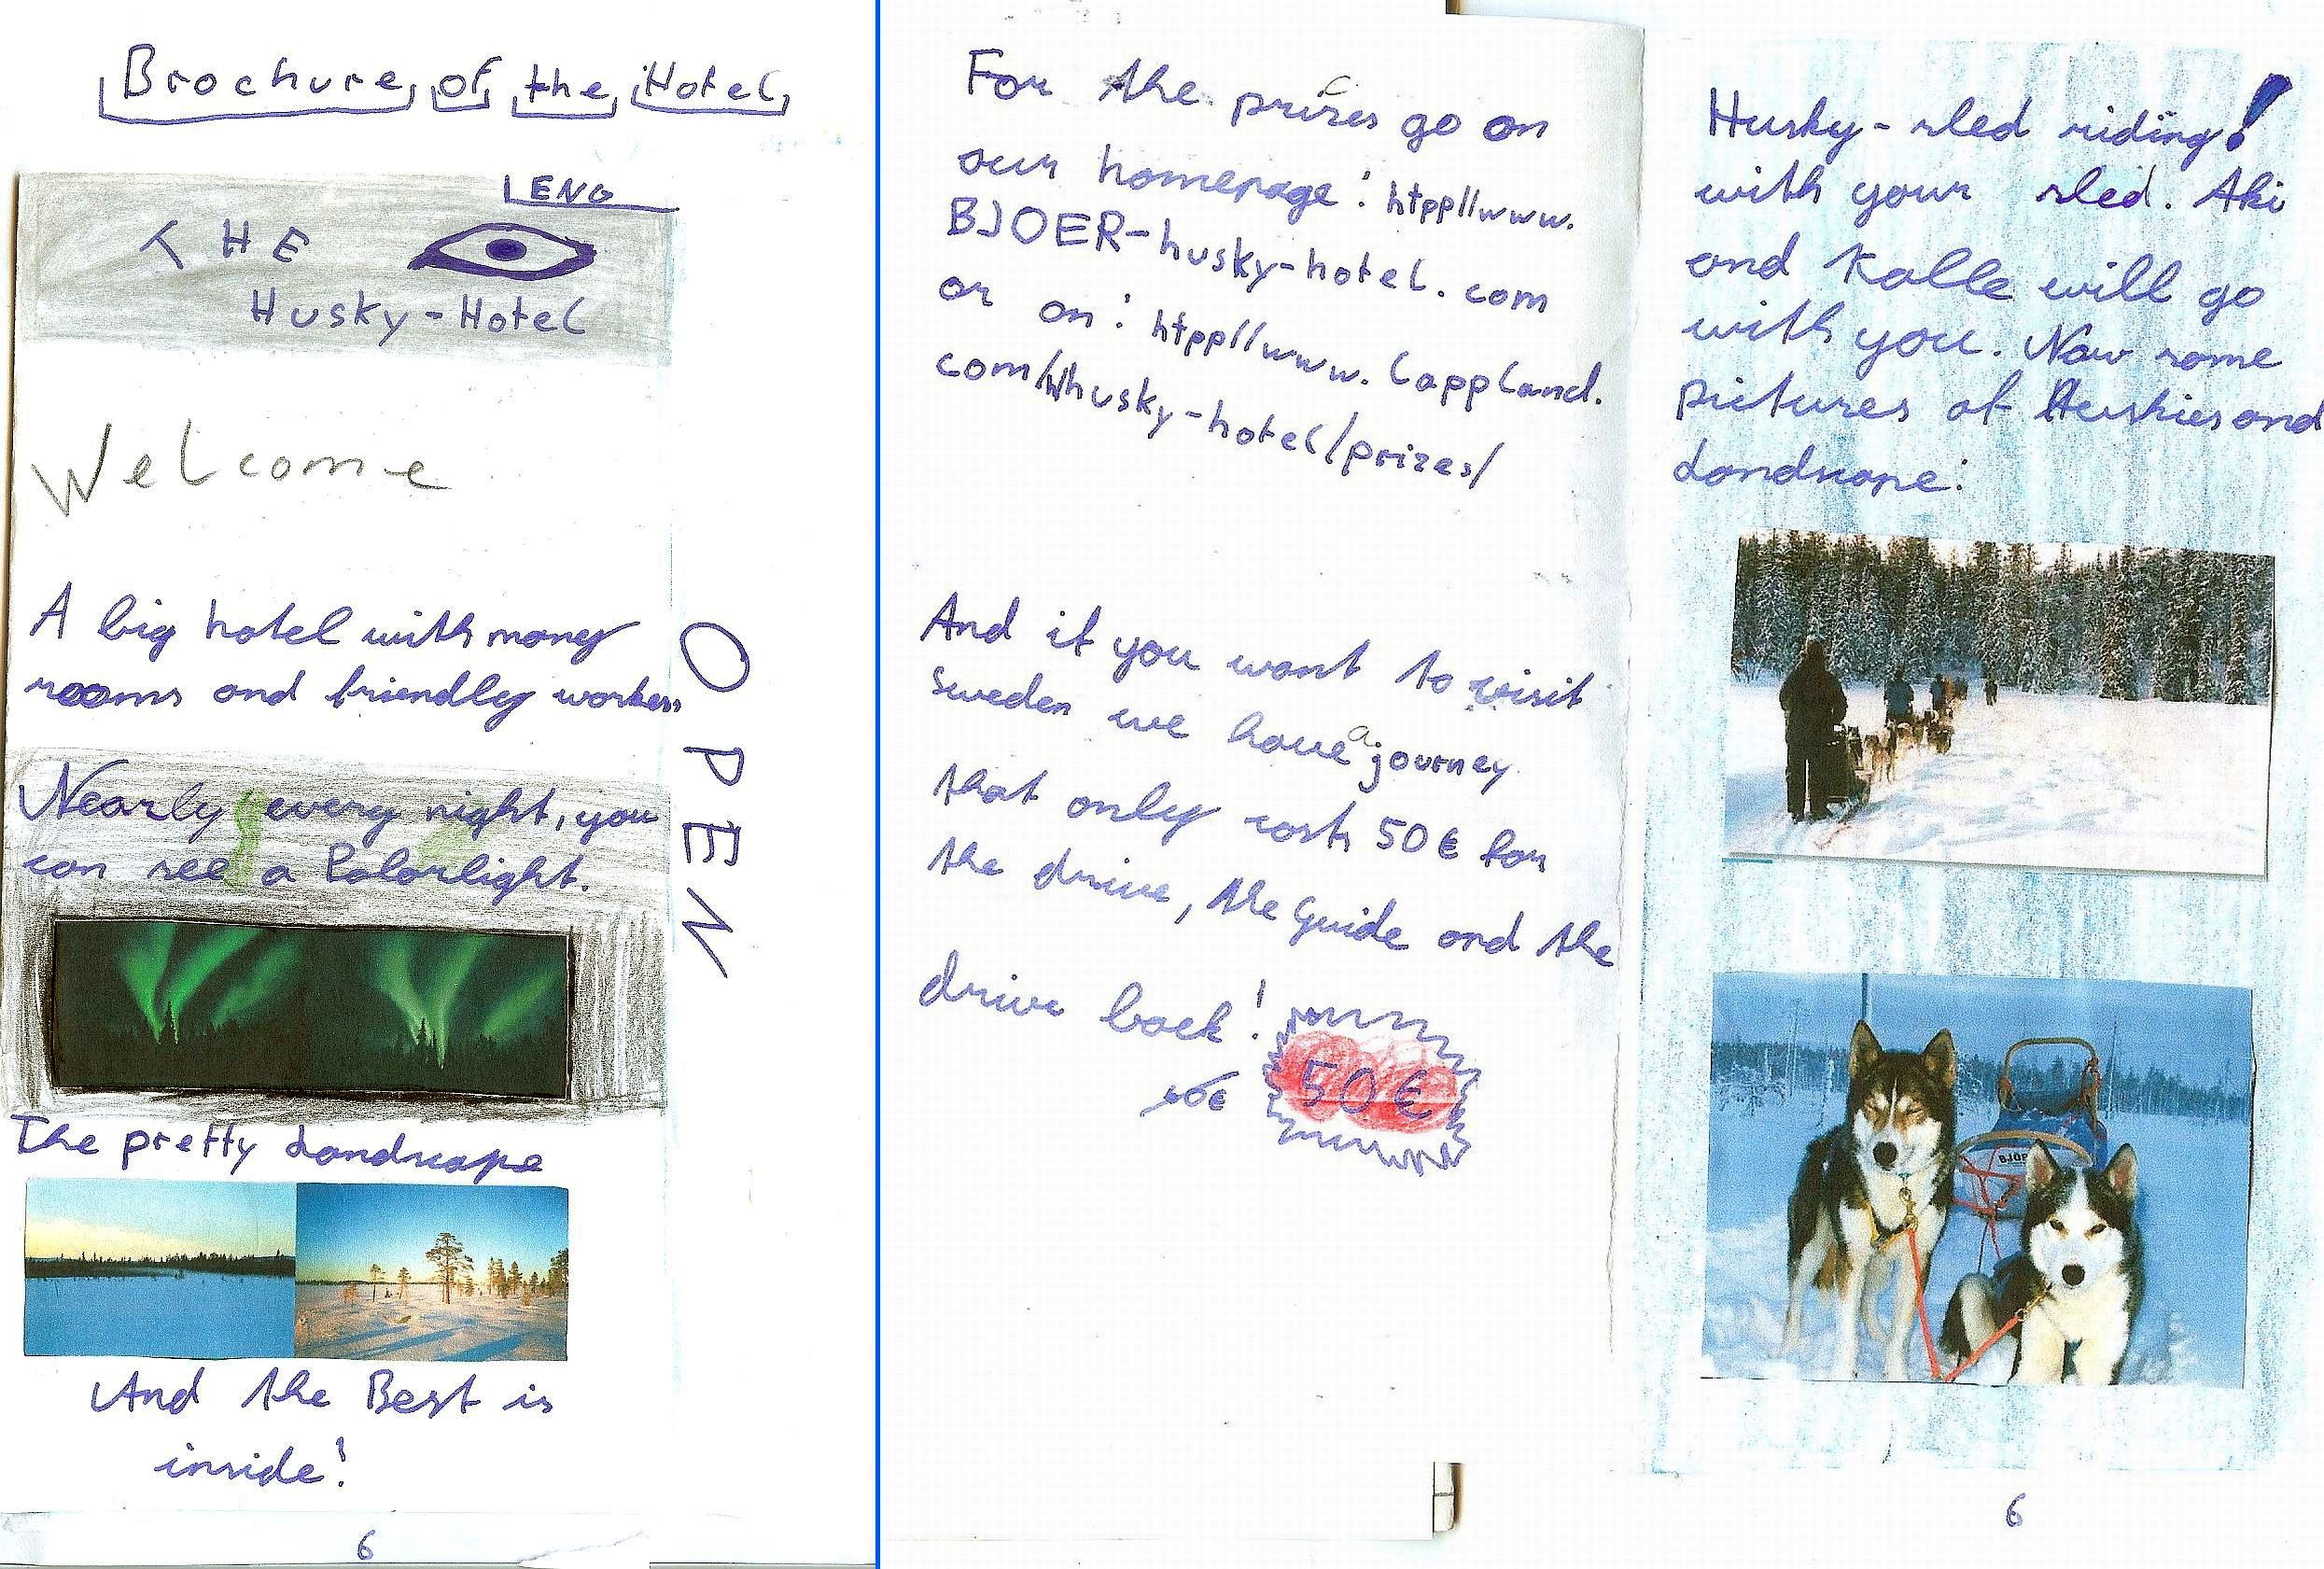 Brochure of the Hotel
ENG
THE
Husky-Hotel
Welcome
A big hotel with many
rooms and friendly workers
Nearly every night, you
can see a Polarlight.
OPEN
The pretty Landscape
And the Best is
inside!
6
For the prizes go on
our homepage: htpp//www.
BJOER-husky-hotel.com
or on: htpp//www.lappland.
com/husky-hotel/prizes/
And if you want to visit
Sweden we have a journey
that only costs 50€ for
the drive, the Guide and the
drive back!
50€
Husky-sled riding!
with your sled. Aki
and Kalle will go
with you. Now some
pictures of Huskies and
Landscape:
6